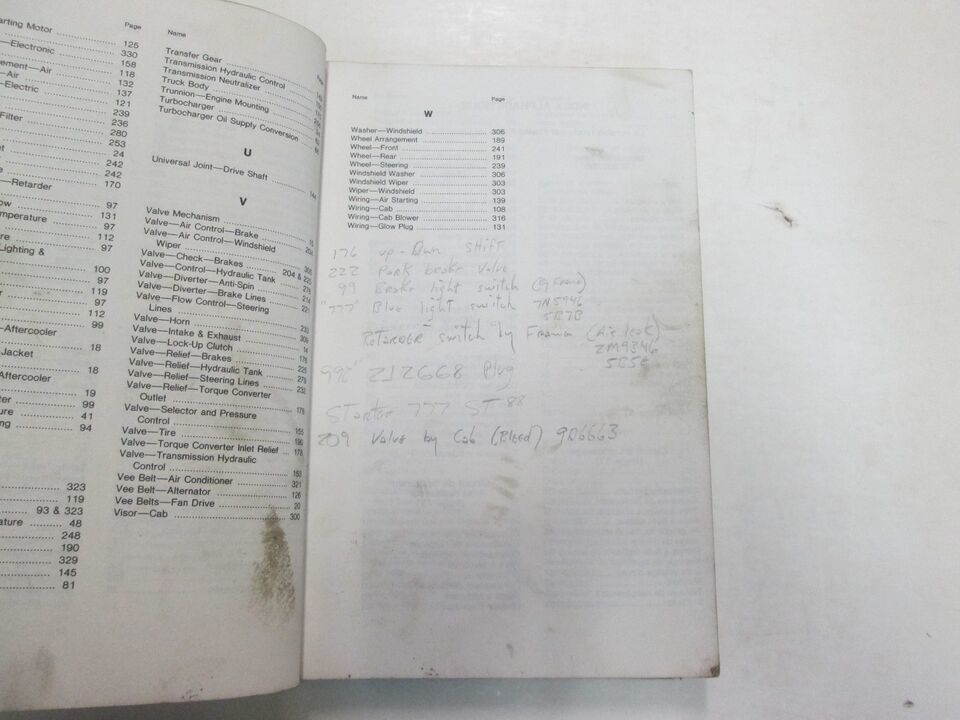 Page
arting Motor 125
330
—Electronic 158
ement—Air 118
—Air 132
—Electric 137
121
239
Filter 236
280
253
24
242
242
—Retarder 170
97
ow 131
mperature 97
112
97
Lighting &
100
97
119
97
112
99
—Aftercooler
18
Jacket
18
Aftercooler
19
99
41
94
323
119
93 & 323
ature 48
248
190
329
145
81
Name
Transfer Gear
Transmission Hydraulic Control
Transmission Neutralizer
Truck Body
Trunnion—Engine Mounting
Turbocharger
Turbocharger Oil Supply Conversion
U
Universal Joint—Drive Shaft 144
V
Valve Mechanism
Valve—Air Control—Brake
Valve—Air Control—Windshield
Wiper
Valve—Check—Brakes 204 &
Valve—Control—Hydraulic Tank
Valve—Diverter—Anti-Spin
Valve—Diverter—Brake Lines 214
Valve—Flow Control—Steering
Lines
Valve—Horn
Valve—Intake & Exhaust 309
Valve—Lock-Up Clutch 14
Valve—Relief—Brakes
Valve—Relief—Hydraulic Tank
Valve—Relief—Steering Lines
Valve—Relief—Torque Converter
Outlet
Valve—Selector and Pressure
Control
Valve—Tire 190
Valve—Torque Converter Inlet Relief 178
Valve—Transmission Hydraulic
Control
Vee Belt—Air Conditioner 321
Vee Belt—Alternator 126
Vee Belts—Fan Drive 20
Visor—Cab 300
Name Page
W
Washer—Windshield 306
Wheel Arrangement 189
Wheel—Front 241
Wheel—Rear 191
Wheel—Steering 239
Windshield Washer 306
Windshield Wiper 303
Wiper—Windshield 303
Wiring—Air Starting 139
Wiring—Cab 108
Wiring—Cab Blower 316
Wiring—Glow Plug 131
176 up-Down Shift
222 Park brake Valve
99 Brake light switch (By Frame)
"777" Blue light switch 7N5946
5B7B
Retarder switch by Frame (Air leak)
2M9346
5B5E
992" 2J2668 Plug
Starter 777 ST 88
209 Valve by Cab (Bleed) 9D6663